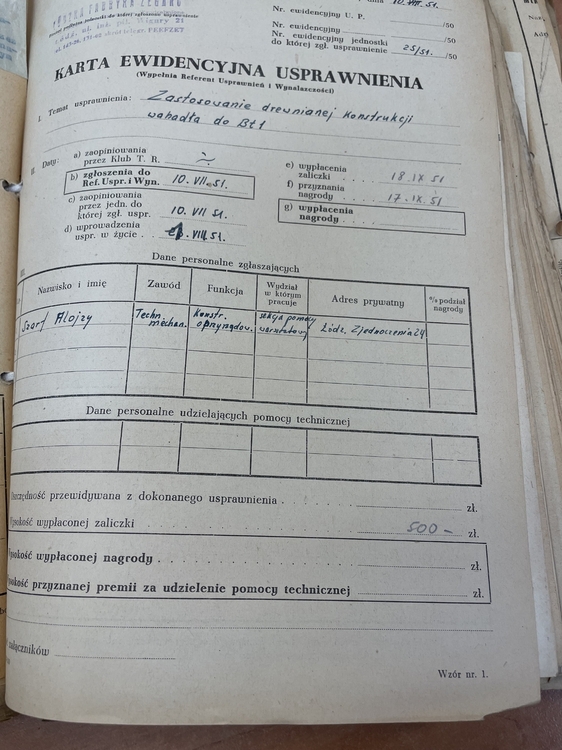 10.VII.51.
Nr. ewidencyjny U. P. /50
Nr. ewidencyjny /50
Nr. ewidencyjny jednostki
do której zgł. usprawnienie 25/51. /50
KARTA EWIDENCYJNA USPRAWNIENIA
(Wypełnia Referent Usprawnień i Wynalazczości)
I. Temat usprawnienia: Zastosowanie drewnianej konstrukcji
wahadła do Bt1
II. Daty: a) zaopiniowania
przez Klub T. R.
b) zgłoszenia do
Ref. Uspr. i Wyn. 10.VII.51.
c) zaopiniowania
przez jedn. do
której zgł. uspr. 10.VII 51.
d) wprowadzenia
uspr. w życie . VIII.51.
e) wypłacenia
zaliczki . . . 18.IX 51
f) przyznania
nagrody . . . 17.IX.51
g) wypłacenia
nagrody . . . .
III. Dane personalne zgłaszających
Nazwisko i imię Zawód Funkcja Wydział w którym pracuje Adres prywatny % podział nagrody
Szorf Alojzy Techn. mechan. Konstr. oprzyrządow. sekcja pomocy warsztatowej Łódź. Zjednoczenia 24
Dane personalne udzielających pomocy technicznej
Oszczędność przewidywana z dokonanego usprawnienia . . . zł.
Wysokość wypłaconej zaliczki . . . 500 – zł.
Wysokość wypłaconej nagrody . . . zł.
Wysokość przyznanej premii za udzielenie pomocy technicznej zł.
załączników
Wzór nr. 1.